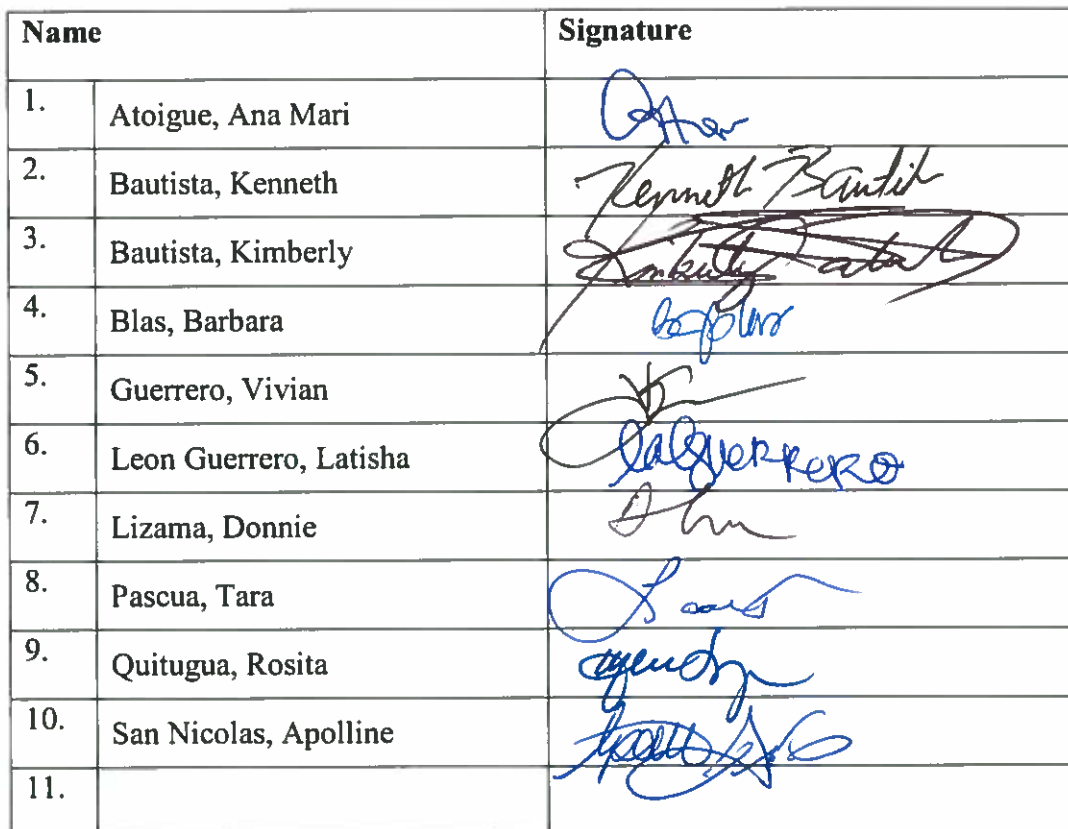 Name Signature
1. Atoigue, Ana Mari
2. Bautista, Kenneth Kenneth Bautista
3. Bautista, Kimberly
4. Blas, Barbara
5. Guerrero, Vivian
6. Leon Guerrero, Latisha LalGUERRERO
7. Lizama, Donnie
8. Pascua, Tara
9. Quitugua, Rosita
10. San Nicolas, Apolline
11.